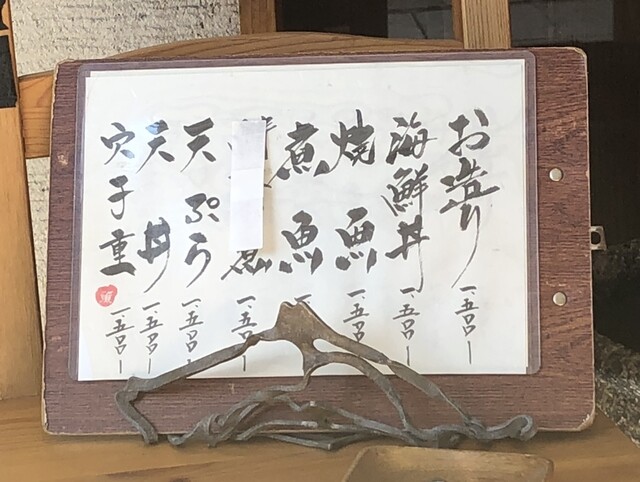 お造り 一、五〇〇ー
海鮮丼 一、五〇〇ー
焼魚 一、五〇〇ー
煮魚
煮 一、五〇〇ー
天ぷら 一、五〇〇ー
天丼 一、五〇〇ー
穴子重 一、五〇〇ー